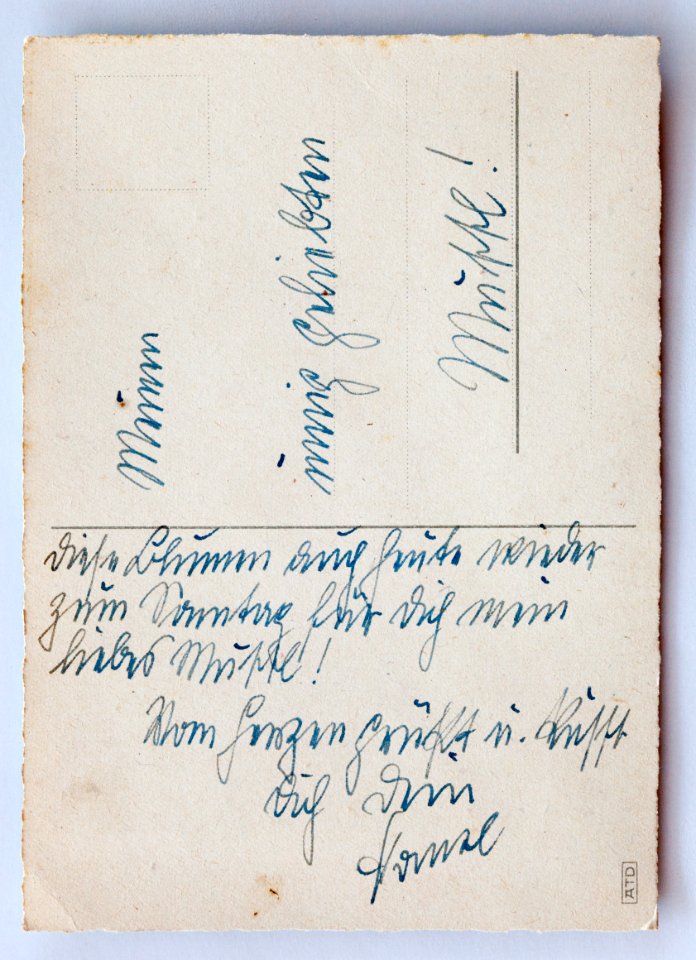 Meinem
innig geliebten
Diese Blumen auch heute wieder
zum Sonntag für Dich mein
liebes
Vom Herzen grüßt u. küsst
Dich Dein
ATD